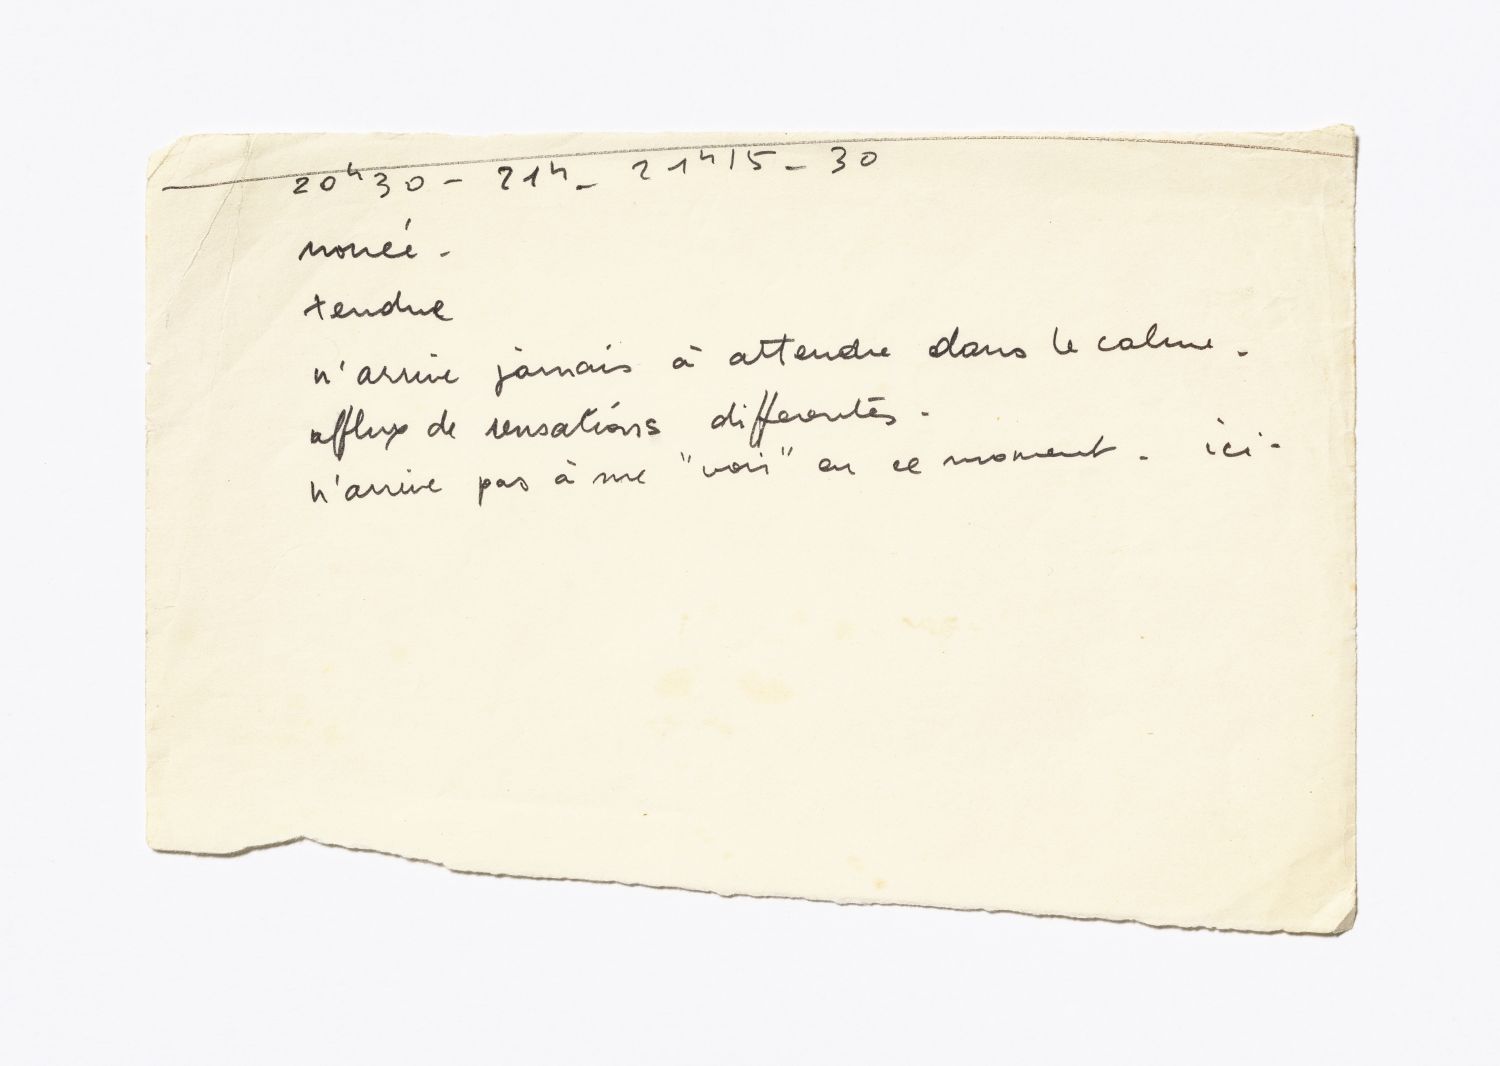 20h30 - 21h - 21h15 - 30
nouée -
tendue
n'arrive jamais à attendre dans le calme -
afflux de sensations différentes -
n'arrive pas à me "voir" en ce moment - ici -